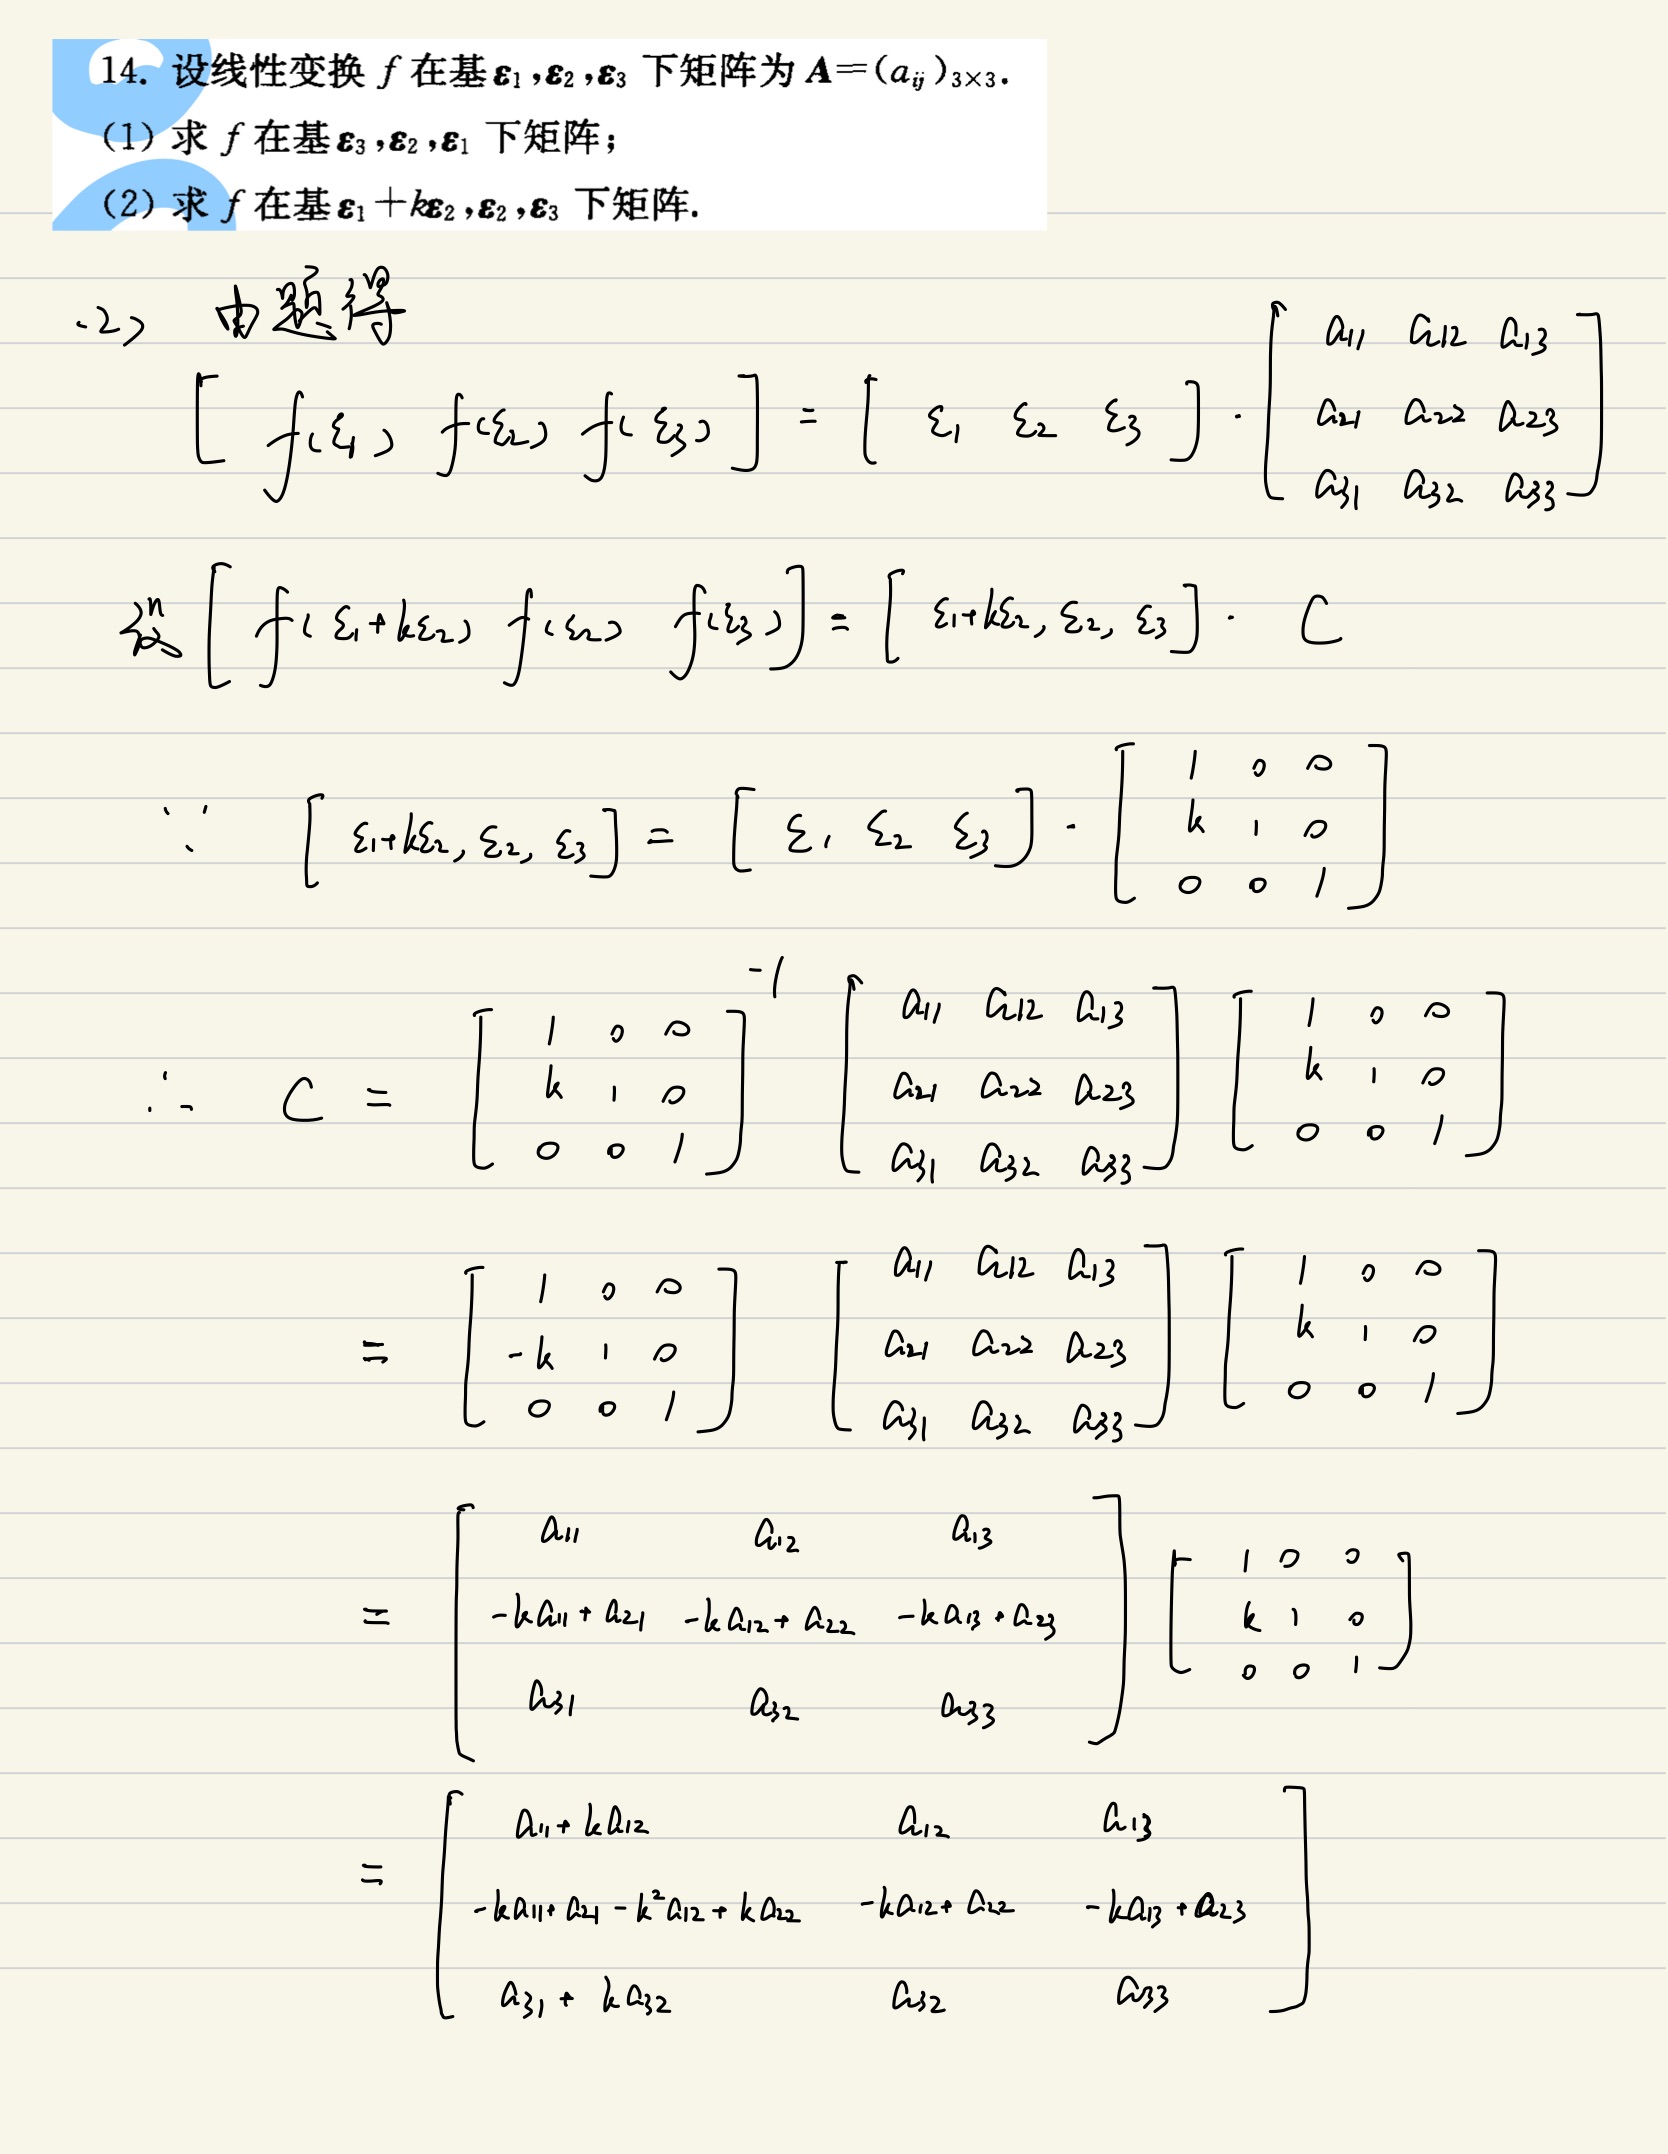 14. 设线性变换 f 在基 ε₁,ε₂,ε₃ 下矩阵为 A=(aᵢⱼ)₃ₓ₃.
(1) 求 f 在基 ε₃,ε₂,ε₁ 下矩阵;
(2) 求 f 在基 ε₁+kε₂,ε₂,ε₃ 下矩阵.
(2) 由题得
[ f(ε₁) f(ε₂) f(ε₃) ] = [ ε₁ ε₂ ε₃ ] · [ a₁₁ a₁₂ a₁₃
a₂₁ a₂₂ a₂₃
a₃₁ a₃₂ a₃₃ ]
[ f(ε₁+kε₂) f(ε₂) f(ε₃) ] = [ ε₁+kε₂, ε₂, ε₃ ] · C
∵ [ ε₁+kε₂, ε₂, ε₃ ] = [ ε₁ ε₂ ε₃ ] · [ 1 0 0
k 1 0
0 0 1 ]
∴ C = [ 1 0 0
k 1 0
0 0 1 ]⁻¹ [ a₁₁ a₁₂ a₁₃
a₂₁ a₂₂ a₂₃
a₃₁ a₃₂ a₃₃ ] [ 1 0 0
k 1 0
0 0 1 ]
= [ 1 0 0
-k 1 0
0 0 1 ] [ a₁₁ a₁₂ a₁₃
a₂₁ a₂₂ a₂₃
a₃₁ a₃₂ a₃₃ ] [ 1 0 0
k 1 0
0 0 1 ]
= [ a₁₁ a₁₂ a₁₃
-ka₁₁+a₂₁ -ka₁₂+a₂₂ -ka₁₃+a₂₃
a₃₁ a₃₂ a₃₃ ] [ 1 0 0
k 1 0
0 0 1 ]
= [ a₁₁+ka₁₂ a₁₂ a₁₃
-ka₁₁+a₂₁-k²a₁₂+ka₂₂ -ka₁₂+a₂₂ -ka₁₃+a₂₃
a₃₁+ka₃₂ a₃₂ a₃₃ ]